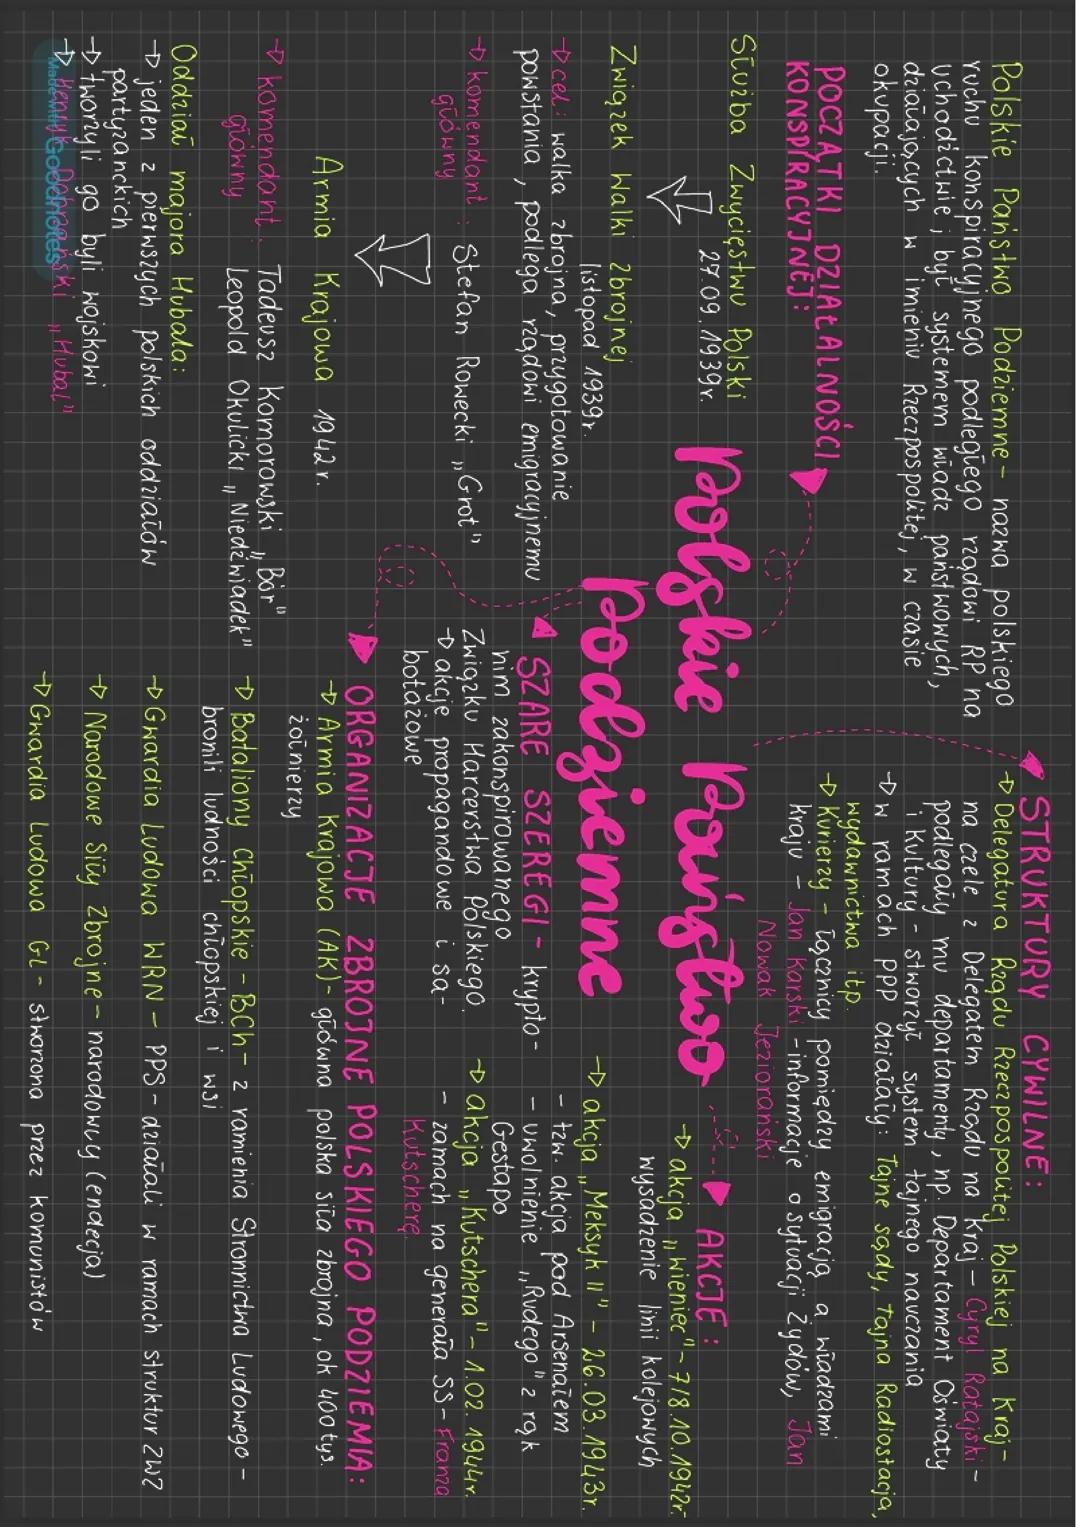 Polskie Państwo Podziemne - nazwa polskiego
ruchu konspiracyjnego podległego rządowi RP na
uchodźctwie; był systemem władz państwowych,
działających w imieniu Rzeczpospolitej, w czasie
okupacji.
POCZĄTKI DZIAŁALNOŚCI
KONSPIRACYJNEJ:
Służba Zwycięstwu Polski
27.09.1939r.
Związek Walki Zbrojnej
listopad 1939r.
→ cel: walka zbrojna, przygotowanie
powstania, podlega rządowi emigracyjnemu
→ komendant: Stefan Rowecki „Grot"
główny
Armia Krajowa 1942r.
→ komendant: Tadeusz Komorowski „Bór"
główny Leopold Okulicki „Niedźwiadek"
Oddział majora Hubala:
→ jeden z pierwszych polskich oddziałów
partyzanckich
→ tworzyli go byli wojskowi
→ Henryk Dobrzański „Hubal"
Made with Goodnotes
Polskie Państwo
Podziemne
STRUKTURY CYWILNE:
→ Delegatura Rządu Rzeczpospolitej Polskiej na Kraj-
na czele z Delegatem Rządu na Kraj - Cyryl Ratajski -
podlegały mu departamenty, np. Departament Oświaty
i Kultury - stworzył system tajnego nauczania
→ w ramach PPP działały: Tajne sądy, Tajna Radiostacja,
wydawnictwa itp.
→ Kurierzy - łącznicy pomiędzy emigracją a władzami
kraju - Jan Karski - informacje o sytuacji Żydów, Jan
Nowak Jeziorański
AKCJE:
→ akcja „Wieniec" - 7/8.10.1942r.
wysadzenie linii kolejowych
→ akcja „Meksyk II" - 26.03.1943r.
- tzw. akcja pod Arsenałem
- uwolnienie „Rudego" z rąk
Gestapo
→ akcja „Kutschera" - 1.02.1944r.
- zamach na generała SS - Franza
Kutscherę
SZARE SZEREGI - krypto-
nim zakonspirowanego
Związku Harcerstwa Polskiego.
→ akcje propagandowe i sa-
botażowe
ORGANIZACJE ZBROJNE POLSKIEGO PODZIEMIA:
→ Armia Krajowa (AK) - główna polska siła zbrojna, ok 400 tys.
żołnierzy
→ Bataliony Chłopskie - BCh - z ramienia Stronnictwa Ludowego -
bronili ludności chłopskiej i wsi
→ Gwardia Ludowa WRN - PPS - działali w ramach struktur ZWZ
→ Narodowe Siły Zbrojne - narodowcy (endecja)
→ Gwardia Ludowa GL - stworzona przez komunistów